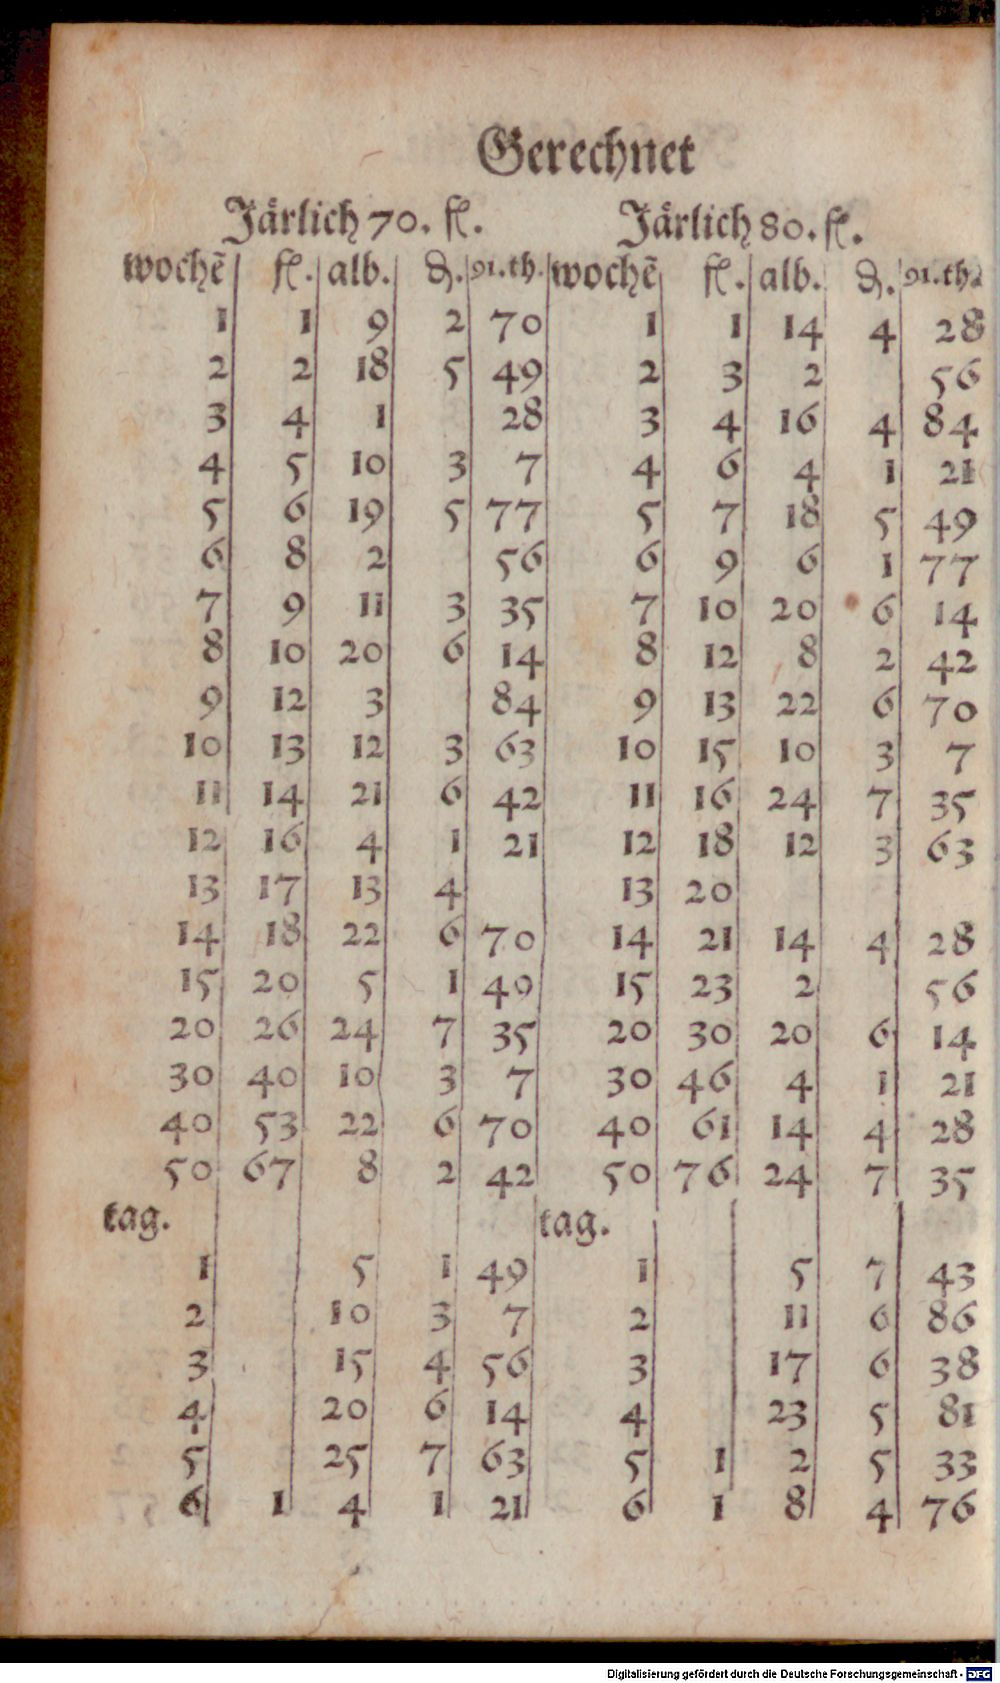 Gerechnet
Järlich 70. fl. Järlich 80. fl.
wochē fl. alb. ₰. 91.th. wochē fl. alb. ₰. 91.th.
1 1 9 2 70 1 1 14 4 28
2 2 18 5 49 2 3 2 56
3 4 1 28 3 4 16 4 84
4 5 10 3 7 4 6 4 1 21
5 6 19 5 77 5 7 18 5 49
6 8 2 56 6 9 6 1 77
7 9 11 3 35 7 10 20 6 14
8 10 20 6 14 8 12 8 2 42
9 12 3 84 9 13 22 6 70
10 13 12 3 63 10 15 10 3 7
11 14 21 6 42 11 16 24 7 35
12 16 4 1 21 12 18 12 3 63
13 17 13 4 13 20
14 18 22 6 70 14 21 14 4 28
15 20 5 1 49 15 23 2 56
20 26 24 7 35 20 30 20 6 14
30 40 10 3 7 30 46 4 1 21
40 53 22 6 70 40 61 14 4 28
50 67 8 2 42 50 76 24 7 35
tag. tag.
1 5 1 49 1 5 7 43
2 10 3 7 2 11 6 86
3 15 4 56 3 17 6 38
4 20 6 14 4 23 5 81
5 25 7 63 5 1 2 5 33
6 1 4 1 21 6 1 8 4 76
Digitalisierung gefördert durch die Deutsche Forschungsgemeinschaft - DFG